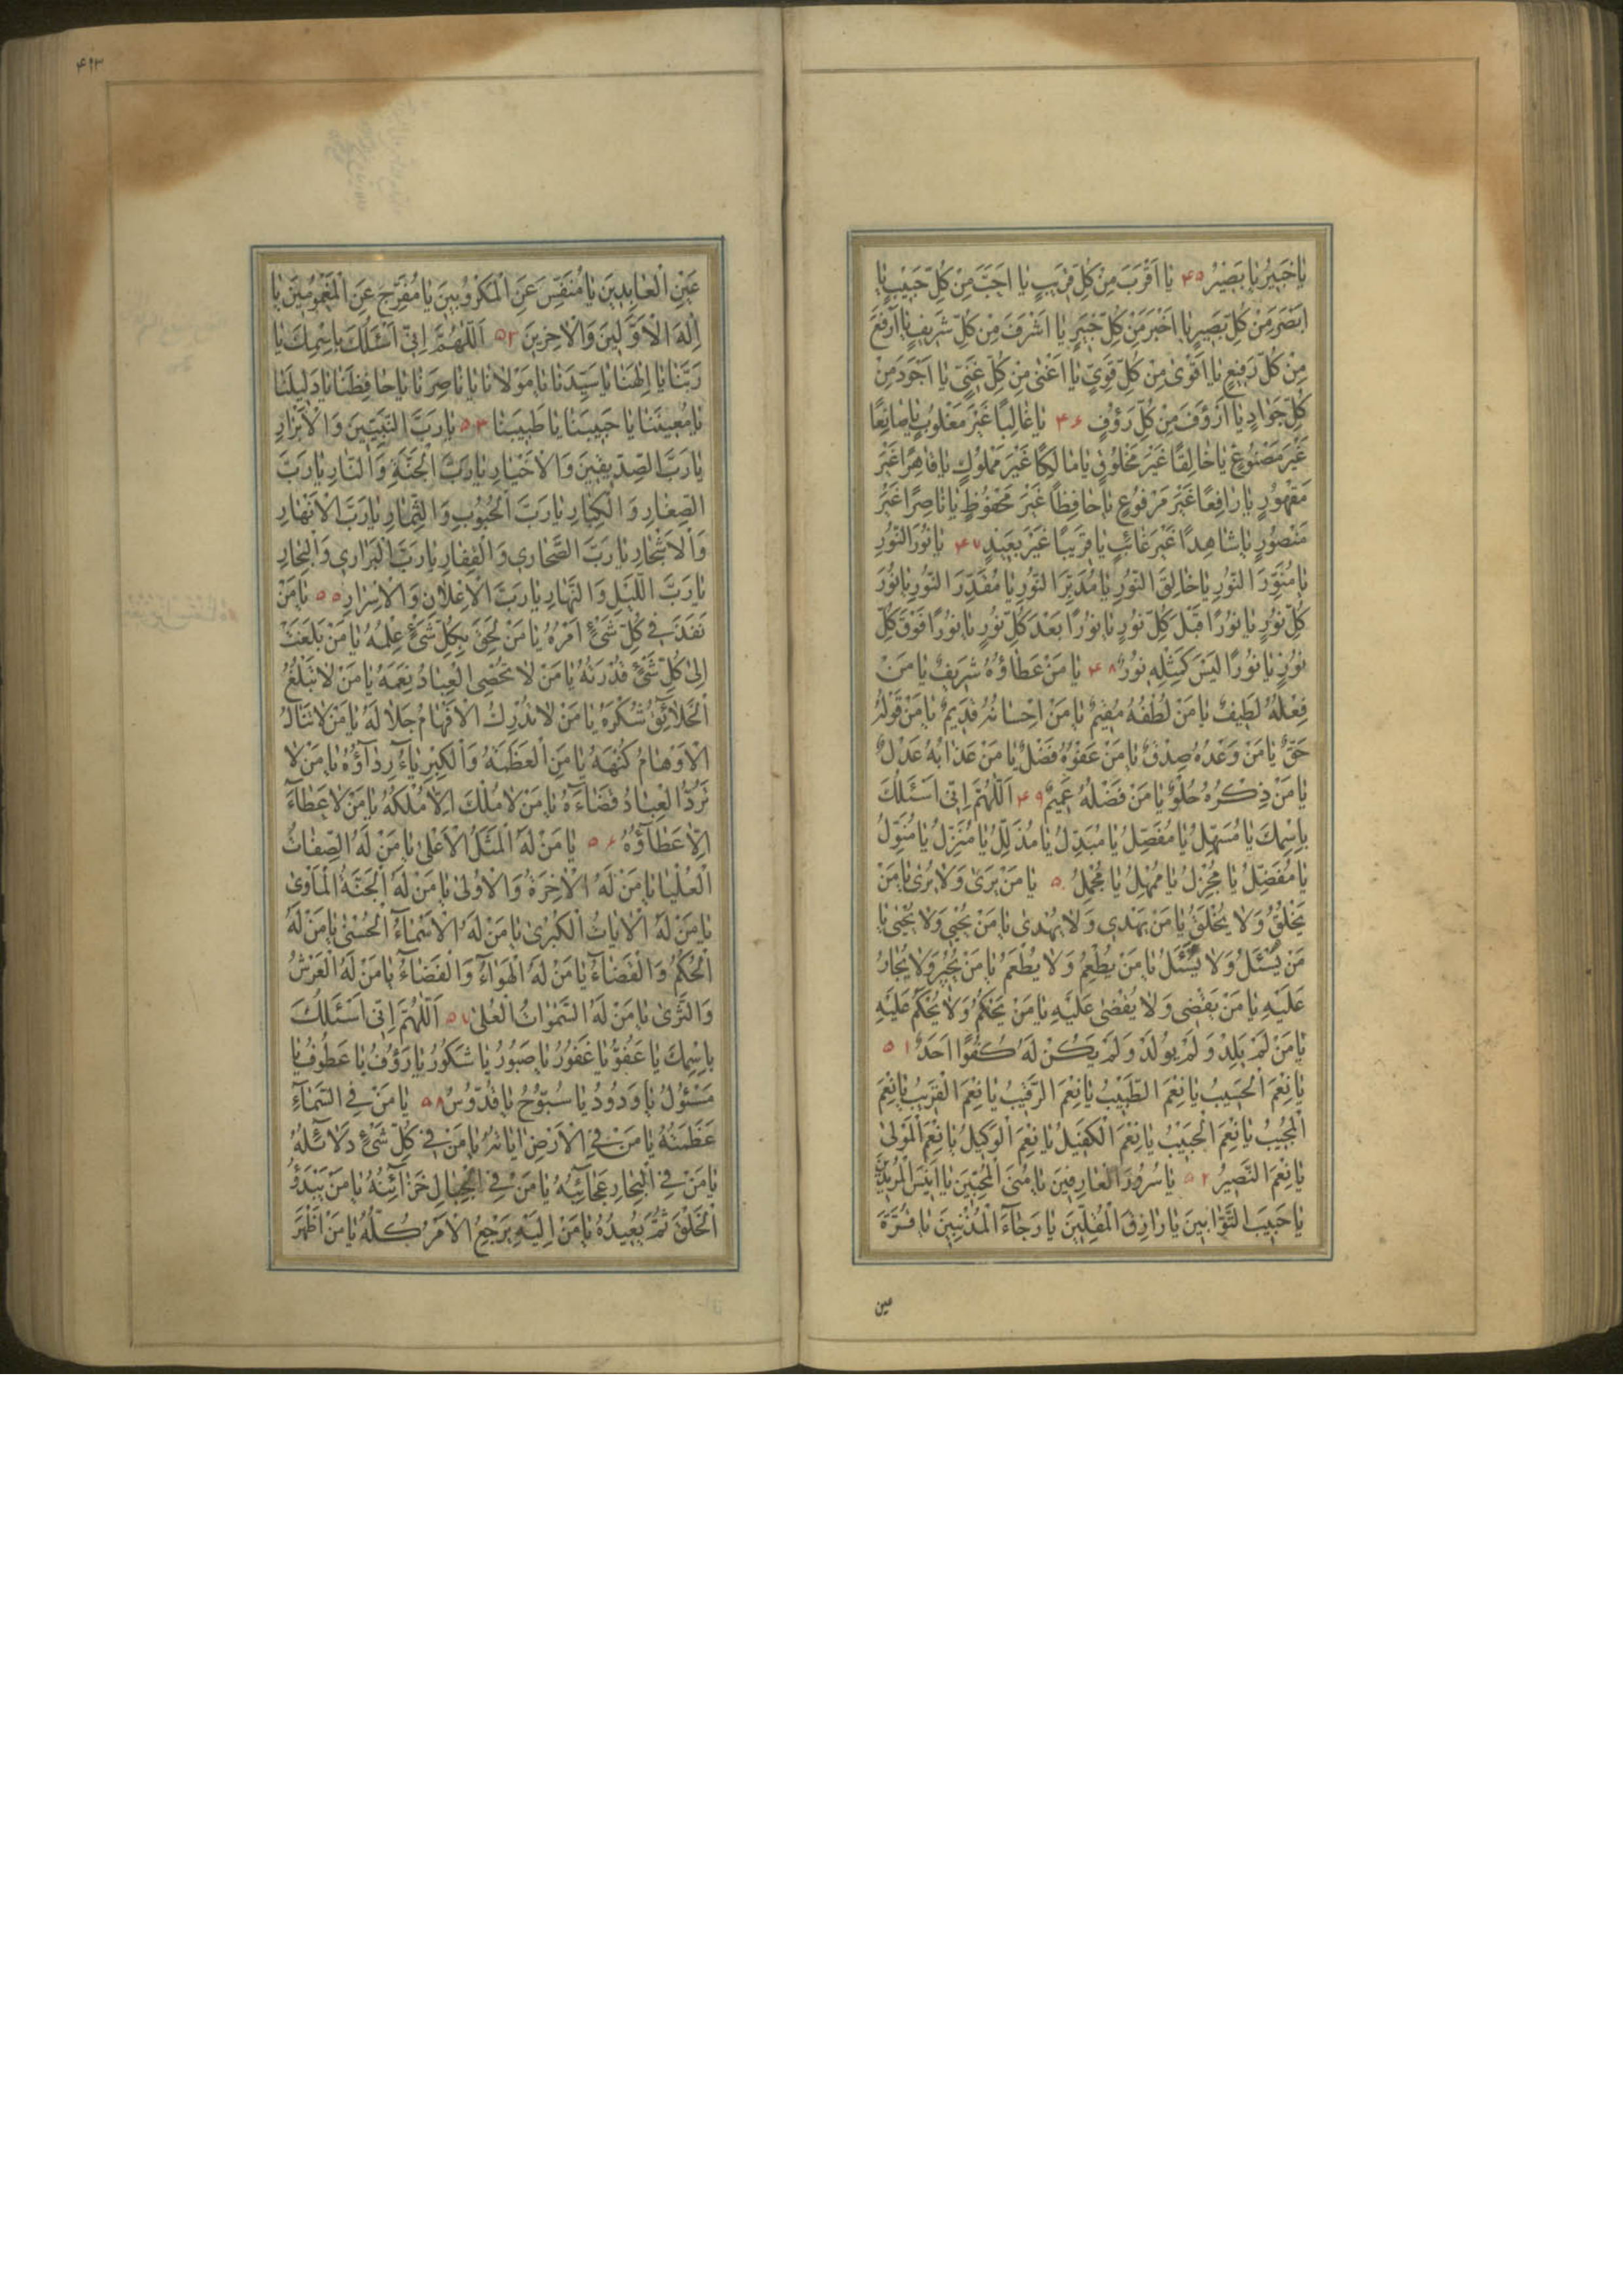 يا خَبيرُ يا بَصيرُ ۴۵ يا اَقْرَبَ مِنْ كُلِّ قَريبٍ يا اَحَبَّ مِنْ كُلِّ حَبيبٍ يا
اَبْصَرَ مِنْ كُلِّ بَصيرٍ يا اَخْبَرَ مِنْ كُلِّ خَبيرٍ يا اَشْرَفَ مِنْ كُلِّ شَريفٍ يا اَرْفَعَ
مِنْ كُلِّ رَفيعٍ يا اَقْوٰى مِنْ كُلِّ قَوِيٍّ يا اَغْنٰى مِنْ كُلِّ غَنِيٍّ يا اَجْوَدَ مِنْ
كُلِّ جَوادٍ يا اَرْؤَفَ مِنْ كُلِّ رَؤُفٍ ۴۶ يا غالِبًا غَيْرَ مَغْلُوبٍ يا صانِعًا
غَيْرَ مَصْنُوعٍ يا خالِقًا غَيْرَ مَخْلُوقٍ يا مالِكًا غَيْرَ مَمْلُوكٍ يا قاهِرًا غَيْرَ
مَقْهُورٍ يا رافِعًا غَيْرَ مَرْفُوعٍ يا حافِظًا غَيْرَ مَحْفُوظٍ يا ناصِرًا غَيْرَ
مَنْصُورٍ يا شاهِدًا غَيْرَ غائِبٍ يا قَريبًا غَيْرَ بَعيدٍ ۴۷ يا نُورَ النُّورِ
يا مُنَوِّرَ النُّورِ يا خالِقَ النُّورِ يا مُدَبِّرَ النُّورِ يا مُقَدِّرَ النُّورِ يا نُورَ
كُلِّ نُورٍ يا نُورًا قَبْلَ كُلِّ نُورٍ يا نُورًا بَعْدَ كُلِّ نُورٍ يا نُورًا فَوْقَ كُلِّ
نُورٍ يا نُورًا لَيْسَ كَمِثْلِهِ نُورٌ ۴۸ يا مَنْ عَطاؤُهُ شَريفٌ يا مَنْ
فِعْلُهُ لَطيفٌ يا مَنْ لُطْفُهُ مُقيمٌ يا مَنْ اِحْسانُهُ قَديمٌ يا مَنْ قَوْلُهُ
حَقٌّ يا مَنْ وَعْدُهُ صِدْقٌ يا مَنْ عَفْوُهُ فَضْلٌ يا مَنْ عَذابُهُ عَدْلٌ
يا مَنْ ذِكْرُهُ حُلْوٌ يا مَنْ فَضْلُهُ عَميمٌ ۴۹ اَللّٰهُمَّ اِنّى اَسْئَلُكَ
بِاسْمِكَ يا مُسَهِّلُ يا مُفَصِّلُ يا مُبَدِّلُ يا مُذَلِّلُ يا مُنَزِّلُ يا مُنَوِّلُ
يا مُفَضِّلُ يا مُجْزِلُ يا مُمْهِلُ يا مُجْمِلُ ۵۰ يا مَنْ يَرٰى وَلا يُرٰى يا مَنْ
يَخْلُقُ وَلا يُخْلَقُ يا مَنْ يَهْدي وَلا يُهْدٰى يا مَنْ يُحْيي وَلا يُحْيٰى يا
مَنْ يُسْئَلُ وَلا يَسْئَلُ يا مَنْ يُطْعِمُ وَلا يُطْعَمُ يا مَنْ يُجيرُ وَلا يُجارُ
عَلَيْهِ يا مَنْ يَقْضي وَلا يُقْضٰى عَلَيْهِ يا مَنْ يَحْكُمُ وَلا يُحْكَمُ عَلَيْهِ
يا مَنْ لَمْ يَلِدْ وَلَمْ يُولَدْ وَلَمْ يَكُنْ لَهُ كُفُوًا اَحَدٌ ۵۱
يا نِعْمَ الْحَسيبُ يا نِعْمَ الطَّبيبُ يا نِعْمَ الرَّقيبُ يا نِعْمَ الْقَريبُ يا نِعْمَ
الْمُجيبُ يا نِعْمَ الْحَبيبُ يا نِعْمَ الْكَفيلُ يا نِعْمَ الْوَكيلُ يا نِعْمَ الْمَوْلٰى
يا نِعْمَ النَّصيرُ ۵۲ يا سُرُورَ الْعارِفينَ يا مُنَى الْمُحِبّينَ يا اَنيسَ الْمُريدينَ
يا حَبيبَ التَّوّابينَ يا رازِقَ الْمُقِلّينَ يا رَجاءَ الْمُذْنِبينَ يا قُرَّةَ
عين
۴۱۳
عَيْنِ الْعابِدينَ يا مُنَفِّسَ عَنِ الْمَكْرُوبينَ يا مُفَرِّجَ عَنِ الْمَغْمُومينَ يا
اِلٰهَ الْاَوَّلينَ وَالْاٰخِرينَ ۵۳ اَللّٰهُمَّ اِنّى اَسْئَلُكَ بِاسْمِكَ يا
رَبَّنا يا اِلٰهَنا يا سَيِّدَنا يا مَوْلانا يا ناصِرَنا يا حافِظَنا يا دَليلَنا
يا مُعينَنا يا حَبيبَنا يا طَبيبَنا ۵۴ يا رَبَّ النَّبِيّينَ وَالْاَبْرارِ
يا رَبَّ الصِّدّيقينَ وَالْاَخْيارِ يا رَبَّ الْجَنَّةِ وَالنّارِ يا رَبَّ
الصِّغارِ وَالْكِبارِ يا رَبَّ الْحُبُوبِ وَالثِّمارِ يا رَبَّ الْاَنْهارِ
وَالْاَشْجارِ يا رَبَّ الصَّحاري وَالْقِفارِ يا رَبَّ الْبَراري وَالْبِحارِ
يا رَبَّ اللَّيْلِ وَالنَّهارِ يا رَبَّ الْاِعْلانِ وَالْاِسْرارِ ۵۵ يا مَنْ
نَفَذَ في كُلِّ شَيْءٍ اَمْرُهُ يا مَنْ لَحِقَ بِكُلِّ شَيْءٍ عِلْمُهُ يا مَنْ بَلَغَتْ
اِلٰى كُلِّ شَيْءٍ قُدْرَتُهُ يا مَنْ لا تُحْصِي الْعِبادُ نِعَمَهُ يا مَنْ لا تَبْلُغُ
الْخَلائِقُ شُكْرَهُ يا مَنْ لا تُدْرِكُ الْاَفْهامُ جَلالَهُ يا مَنْ لا تَنالُ
الْاَوْهامُ كُنْهَهُ يا مَنِ الْعَظَمَةُ وَالْكِبْرِياءُ رِداؤُهُ يا مَنْ لا
تَرُدُّ الْعِبادُ قَضاءَهُ يا مَنْ لا مُلْكَ اِلّا مُلْكُهُ يا مَنْ لا عَطاءَ
اِلّا عَطاؤُهُ ۵۶ يا مَنْ لَهُ الْمَثَلُ الْاَعْلٰى يا مَنْ لَهُ الصِّفاتُ
الْعُلْيا يا مَنْ لَهُ الْاٰخِرَةُ وَالْاُولٰى يا مَنْ لَهُ الْجَنَّةُ الْمَاْوٰى
يا مَنْ لَهُ الْاٰياتُ الْكُبْرٰى يا مَنْ لَهُ الْاَسْماءُ الْحُسْنٰى يا مَنْ لَهُ
الْحُكْمُ وَالْقَضاءُ يا مَنْ لَهُ الْهَواءُ وَالْفَضاءُ يا مَنْ لَهُ الْعَرْشُ
وَالثَّرٰى يا مَنْ لَهُ السَّمٰواتُ الْعُلٰى ۵۷ اَللّٰهُمَّ اِنّى اَسْئَلُكَ
بِاسْمِكَ يا عَفُوُّ يا غَفُورُ يا صَبُورُ يا شَكُورُ يا رَؤُفُ يا عَطُوفُ يا
مَسْئُولُ يا وَدُودُ يا سُبُّوحُ يا قُدُّوسُ ۵۸ يا مَنْ فِي السَّماءِ
عَظَمَتُهُ يا مَنْ فِي الْاَرْضِ اٰياتُهُ يا مَنْ في كُلِّ شَيْءٍ دَلائِلُهُ
يا مَنْ فِي الْبِحارِ عَجائِبُهُ يا مَنْ فِي الْجِبالِ خَزائِنُهُ يا مَنْ يَبْدَؤُ
الْخَلْقَ ثُمَّ يُعيدُهُ يا مَنْ اِلَيْهِ يَرْجِعُ الْاَمْرُ كُلُّهُ يا مَنْ اَظْهَرَ